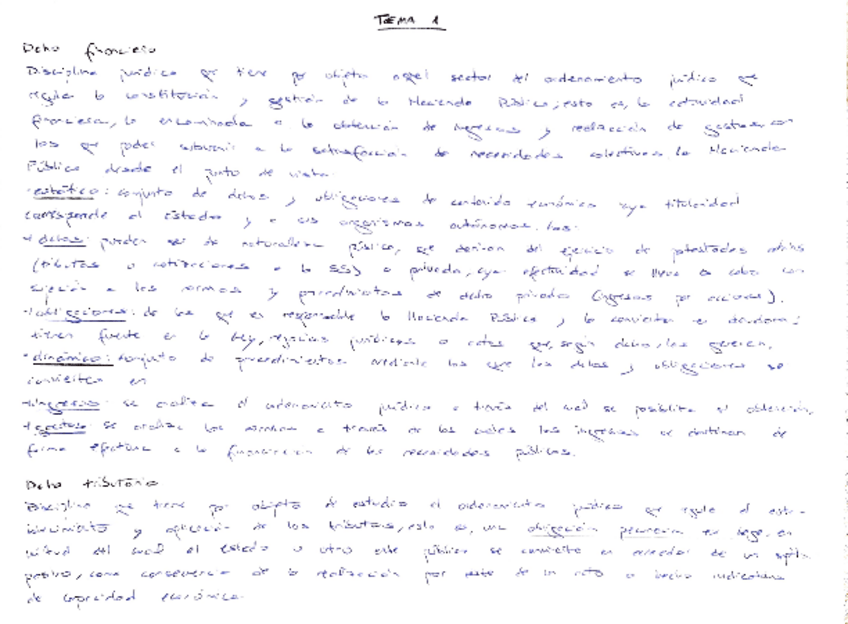 TEMA 1
Dcho financiero
Disciplina jurídica que tiene por objeto aquel sector del ordenamiento jurídico que
regula la constitución y gestión de la Hacienda Pública; esto es, la actividad
financiera, la encaminada a la obtención de ingresos y realización de gastos con
los que poder subvenir a la satisfacción de necesidades colectivas. La Hacienda
Pública desde el punto de vista:
·estático: conjunto de dchos y obligaciones de contenido económico cuya titularidad
corresponde al Estado y a sus organismos autónomos. Los:
dchos: pueden ser de naturaleza pública, que derivan del ejercicio de potestades
(tributos o cotizaciones a la SS) o privada, cuya efectividad se lleva a cabo con
sujeción a las normas y procedimientos de dcho privado (ingresos por acciones).
obligaciones: de las que es responsable la Hacienda Pública y la convierten en deudora;
tienen fuente en la ley, negocios jurídicos o actos que, según dcho, las generen.
·dinámico: conjunto de procedimientos mediante los que los dchos y obligaciones se
convierten en
ingresos: se analiza el ordenamiento jurídico a través del cual se posibilita el obtención,
gastos: se analiza las normas a través de las cuales los ingresos se destinan de
forma efectiva a la financiación de las necesidades públicas.
Dcho tributario
Disciplina que tiene por objeto de estudio el ordenamiento jurídico que regula el esta-
blecimiento y aplicación de los tributos, esto es, una obligación pecuniaria ex lege, en
virtud del cual el estado u otro ente público se convierte en acreedor de un sujeto
pasivo, como consecuencia de la realización por este de un acto o hecho indicativo
de capacidad económica.